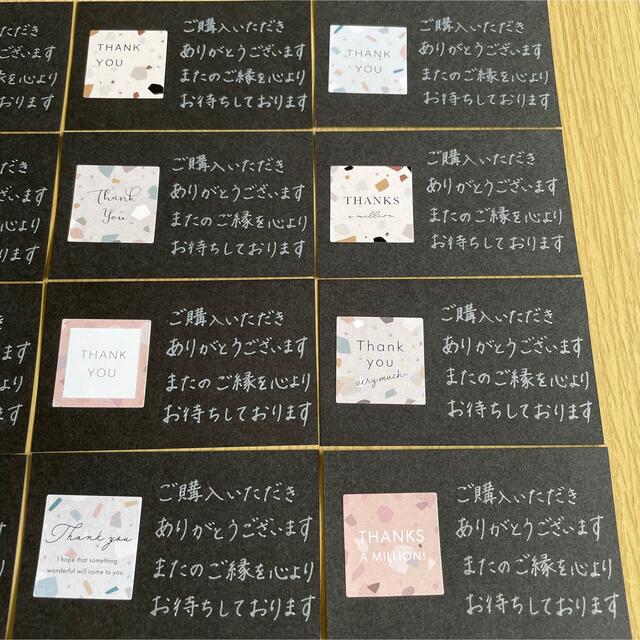 だき
ございます
を心より
おります
THANK
YOU
ご購入いただき
ありがとうございます
またのご縁を心より
お待ちしております
THANK
YOU
ご購入いただき
ありがとうございます
またのご縁を心より
お待ちしております
だき
ざいます
心より
ります
Thank
You
ご購入いただき
ありがとうございます
またのご縁を心より
お待ちしております
THANKS
a million
ご購入いただき
ありがとうございます
またのご縁を心より
お待ちしております
き
ます
より
ます
THANK
YOU
ご購入いただき
ありがとうございます
またのご縁を心より
お待ちしております
Thank
you
very much
ご購入いただき
ありがとうございます
またのご縁を心より
お待ちしております
Thank you
I hope that something
wonderful will come to you.
ご購入いただき
ありがとうございます
またのご縁を心より
お待ちしております
THANKS
A MILLION!
ご購入いただき
ありがとうございます
またのご縁を心より
お待ちしております